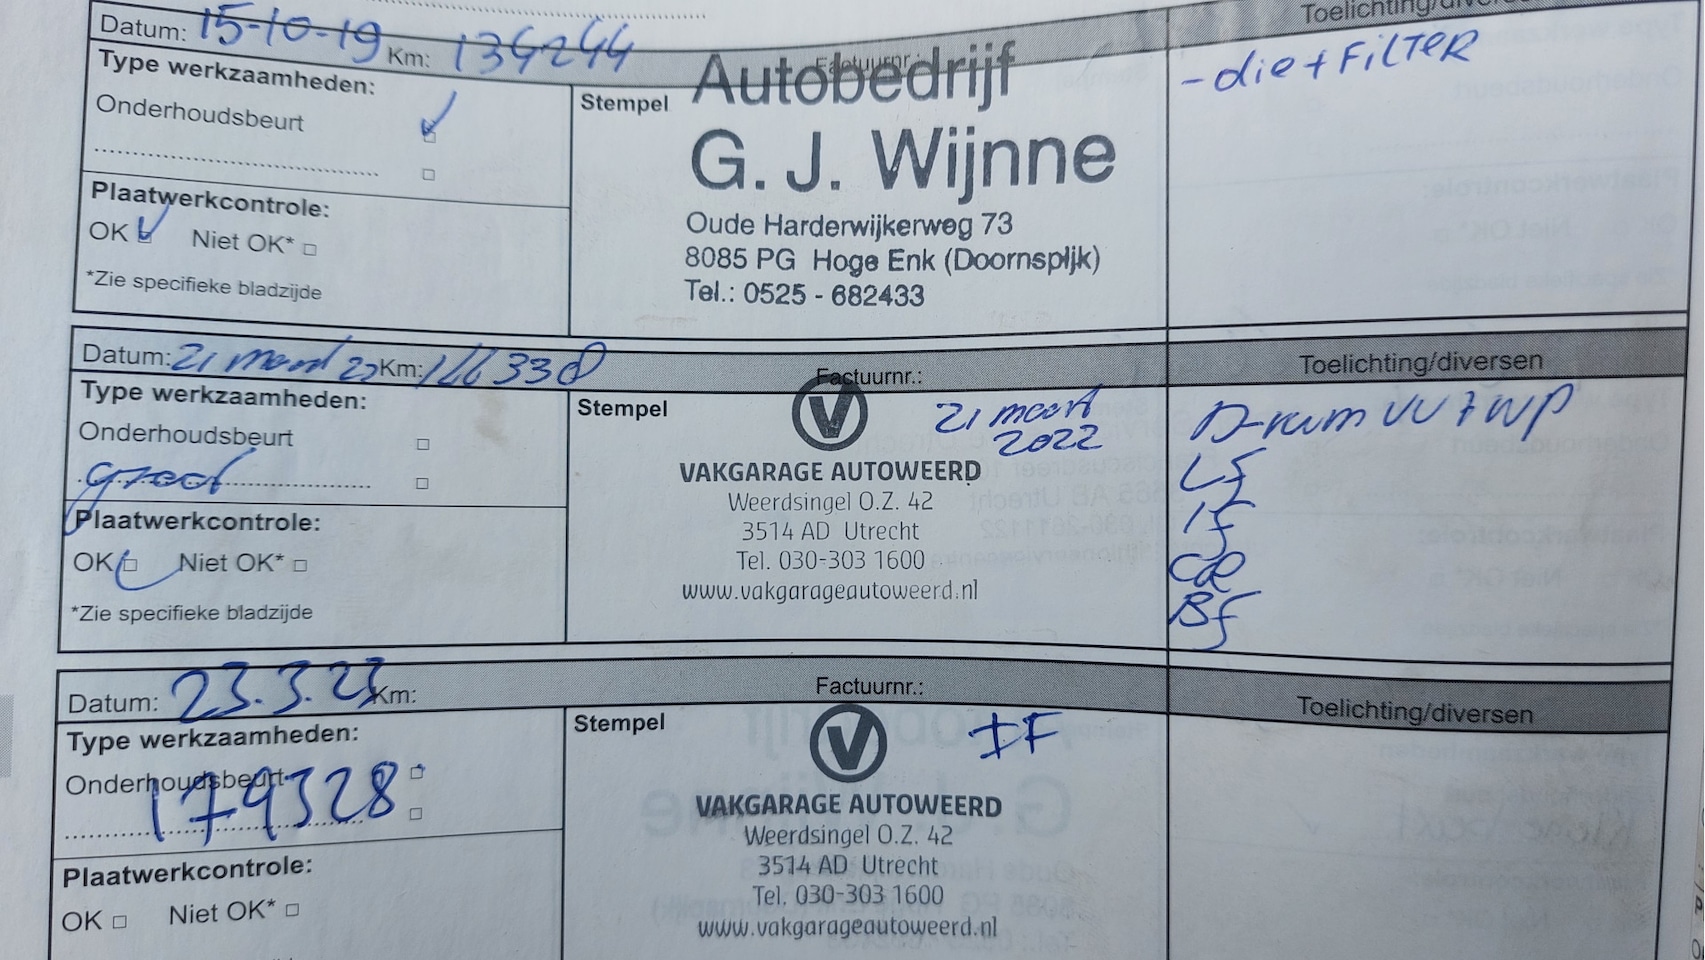 Datum: 15-10-19 Km: 134244
Factuurnr.:
Toelichting/diversen
Type werkzaamheden:
Onderhoudsbeurt
Plaatwerkcontrole:
OK Niet OK*
*Zie specifieke bladzijde
Stempel
Autobedrijf
G. J. Wijnne
Oude Harderwijkerweg 73
8085 PG Hoge Enk (Doornspijk)
Tel.: 0525 - 682433
- olie + FiLTER
Datum: 21 maart 22 Km: 166338
Factuurnr.:
Toelichting/diversen
Type werkzaamheden:
Onderhoudsbeurt
groot
Plaatwerkcontrole:
OK Niet OK*
*Zie specifieke bladzijde
Stempel
21 maart
2022
VAKGARAGE AUTOWEERD
Weerdsingel O.Z. 42
3514 AD Utrecht
Tel. 030-303 1600
www.vakgarageautoweerd.nl
D-riem + WP
Lf
If
Bf
Datum: 23.3.23 Km:
Factuurnr.:
Toelichting/diversen
Type werkzaamheden:
Onderhoudsbeurt
179328
Plaatwerkcontrole:
OK Niet OK*
Stempel
IF
VAKGARAGE AUTOWEERD
Weerdsingel O.Z. 42
3514 AD Utrecht
Tel. 030-303 1600
www.vakgarageautoweerd.nl